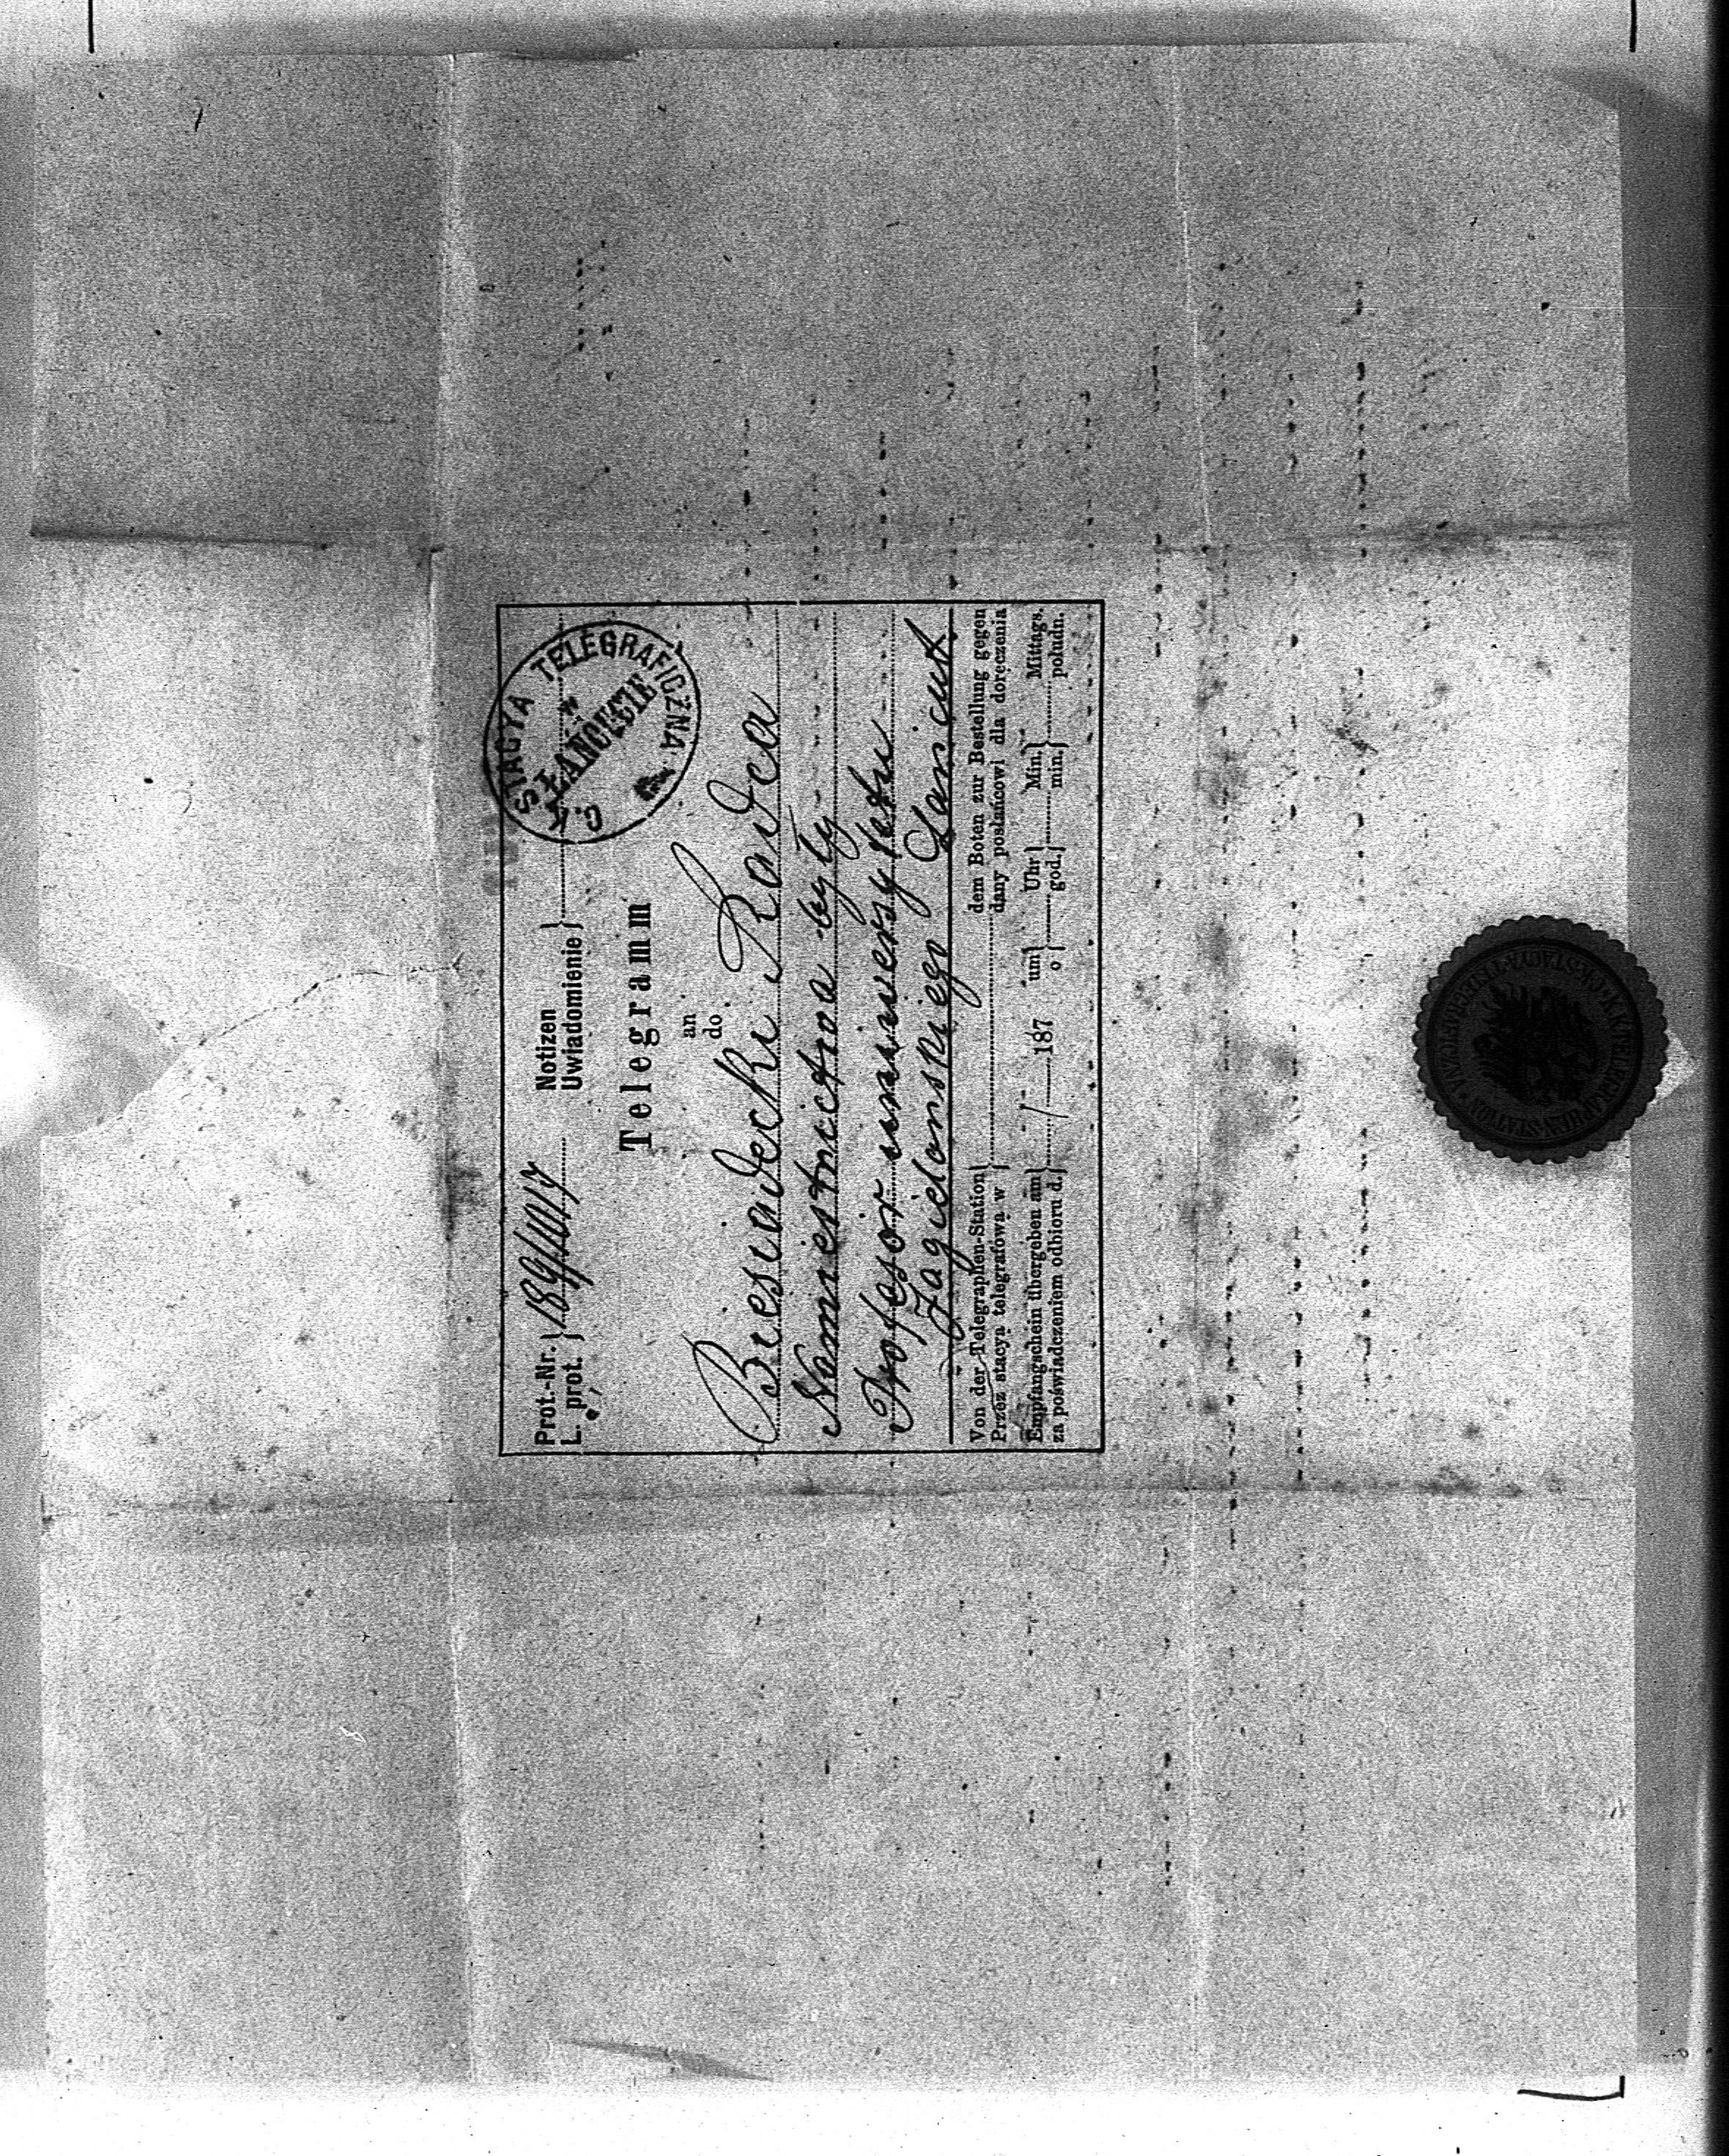 Prot.-Nr. } 189/1017 Notizen }
L. prot. } Uwiadomienie }
C. K. STACYA TELEGRAFICZNA
w
ŁAŃCUCIE
Telegramm
an
do
Biesiadecki Radca
Namiestnictwa były
Profesor uniwersytetu
Jagielonskiego Lancut
Von der Telegraphen-Station } dem Boten zur Bestellung gegen
Przez stacya telegrafowa w } dany posłańcowi dla doręczenia
Empfangschein übergeben am } / 187 um } Uhr } Min. } Mittags.
za poświadczeniem odbioru d. } o } god. } min. } połudn.
K.K. TELEGRAPHEN-STATION
C.K. STACYA TELEGRAFOWA